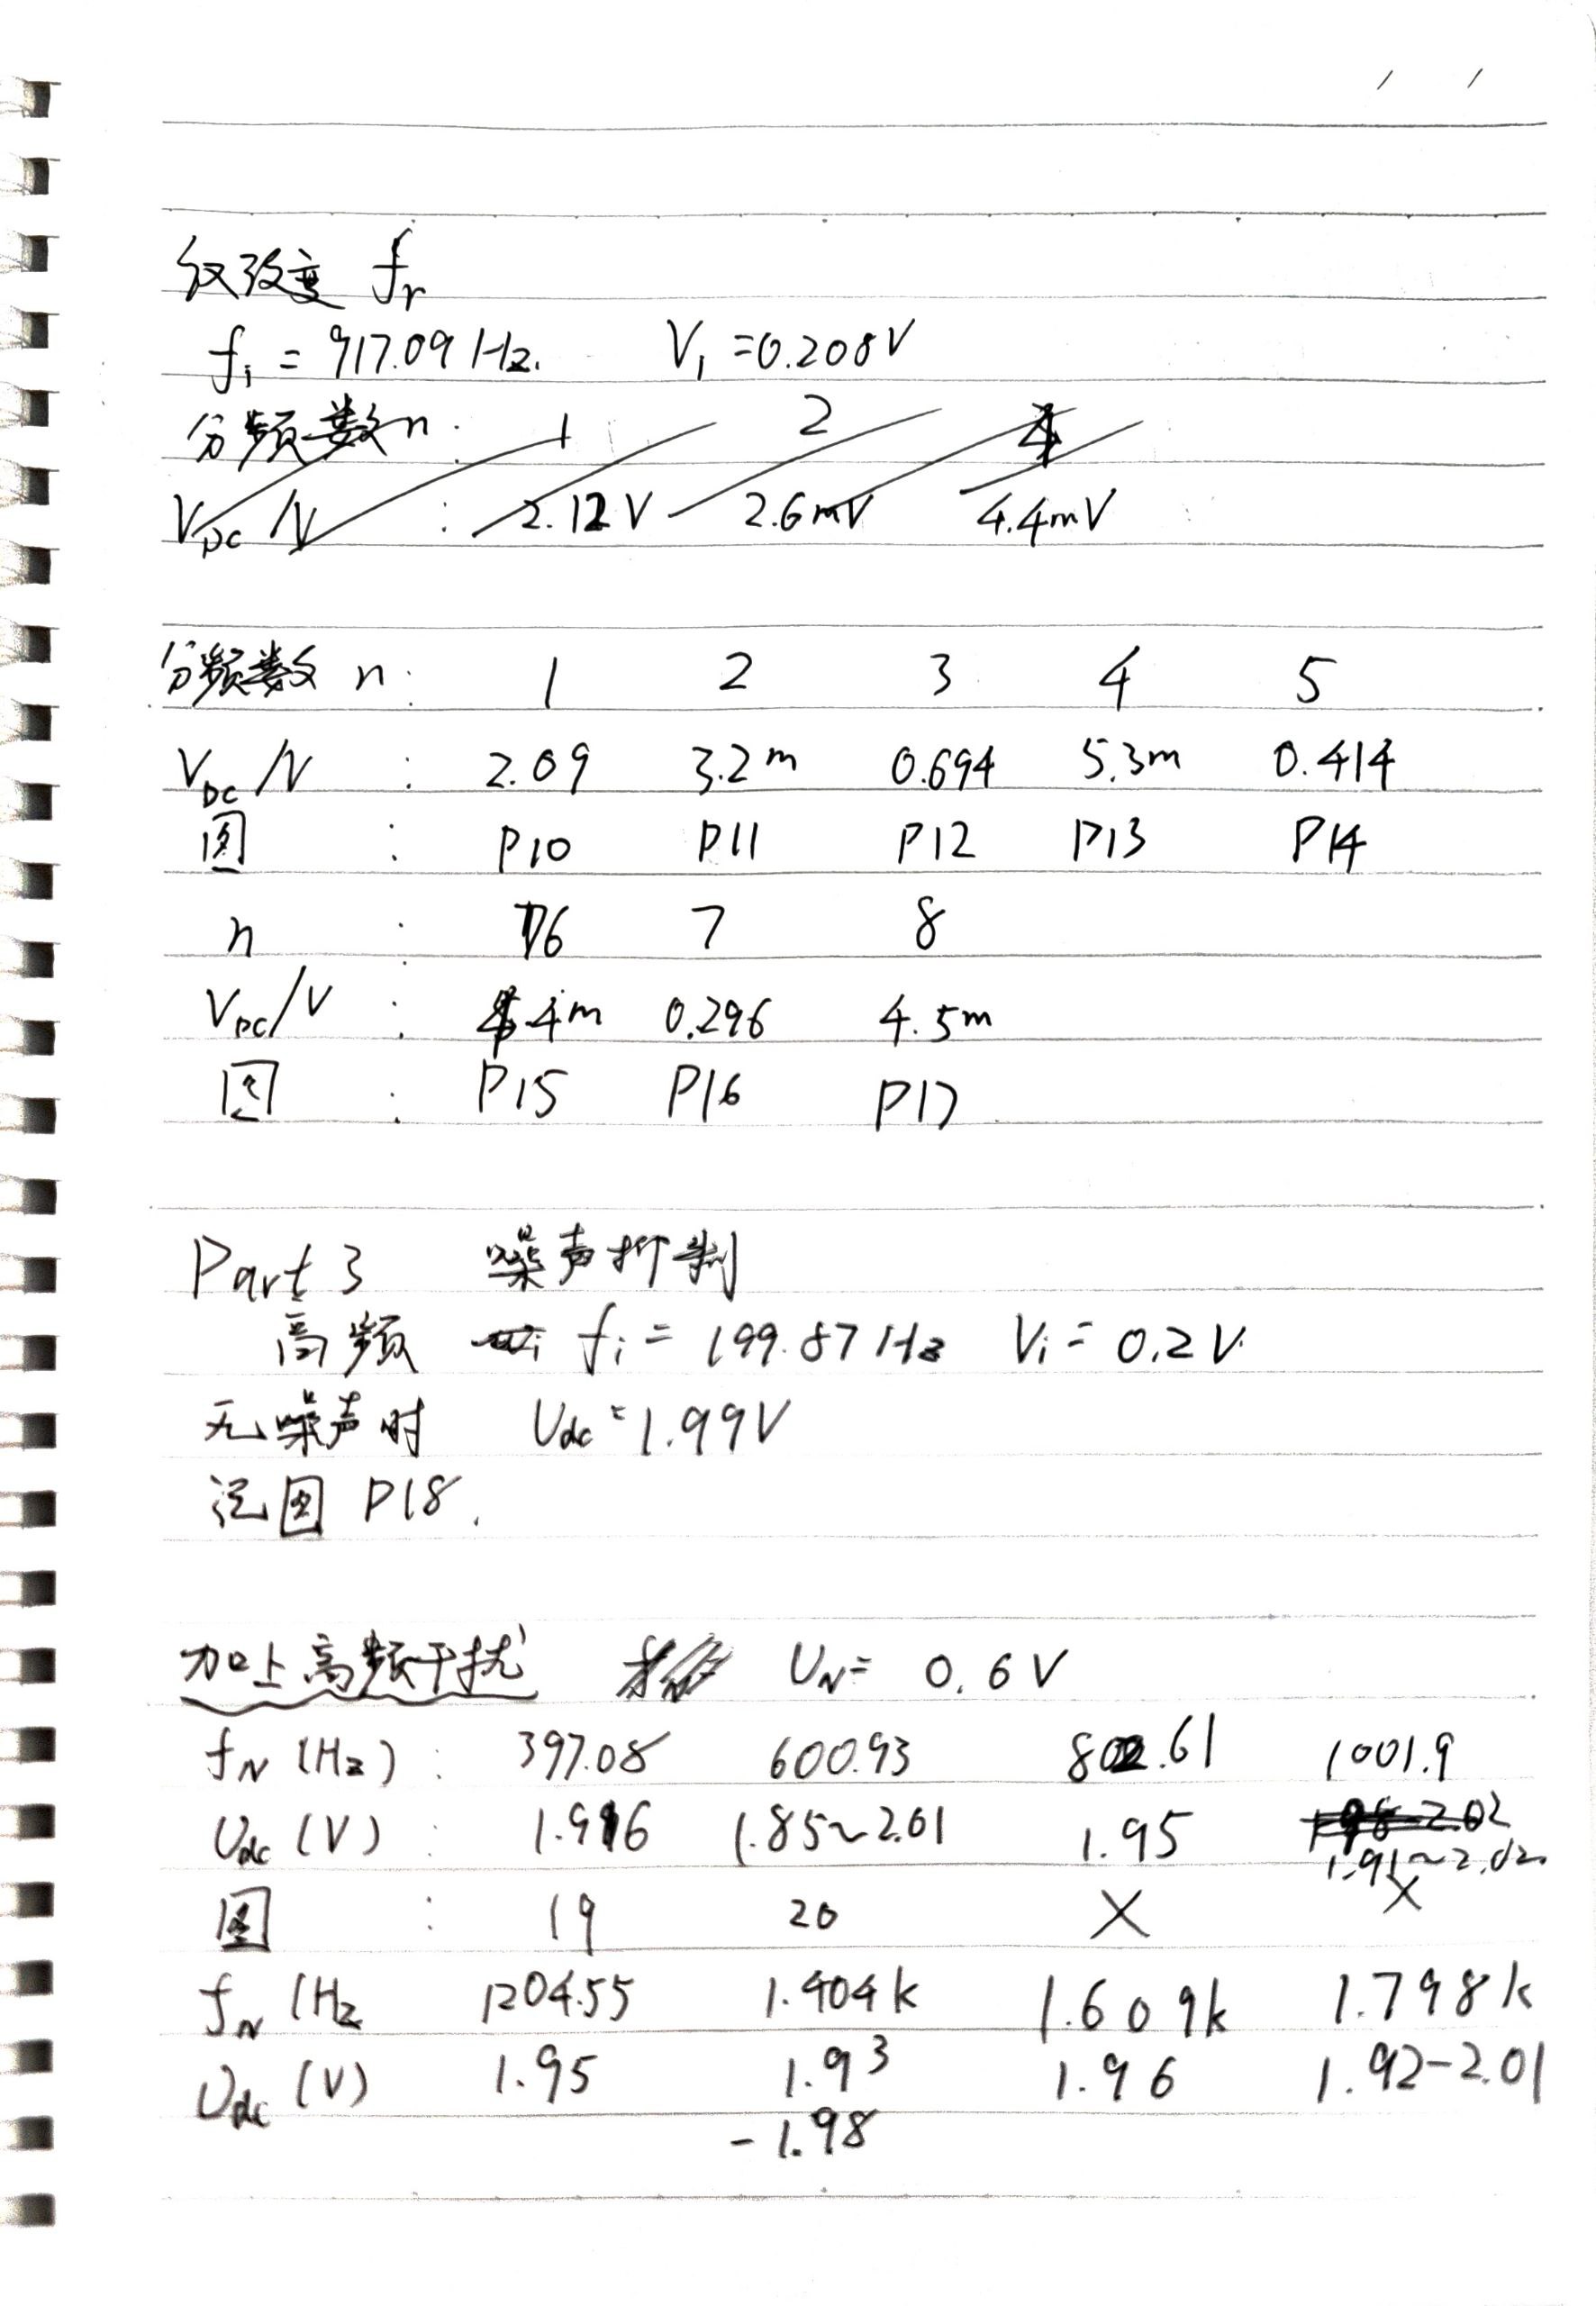 仅改变 fr
fi = 917.09 Hz. V1 = 0.208V
分频数 n : 1 2 4
VDC /V : 2.12V 2.6mV 4.4mV
分频数 n : 1 2 3 4 5
VDC /V : 2.09 3.2m 0.694 5.3m 0.414
图 : P10 P11 P12 P13 P14
n : 6 7 8
VDC/V : 4m 0.296 4.5m
图 : P15 P16 P17
Part 3 噪声抑制
高频 fi = 199.87Hz Vi = 0.2V
无噪声时 Udc = 1.99V
图 P18.
加上高频干扰 UN = 0.6V
fN (Hz) : 397.08 600.93 802.61 1001.9
Udc (V) : 1.85~2.01 1.95 1.91~2.02
图 : 19 20 X X
fN (Hz 1204.55 1.404k 1.609k 1.798k
Udc (V) 1.95 1.93 1.96 1.92-2.01
-1.98